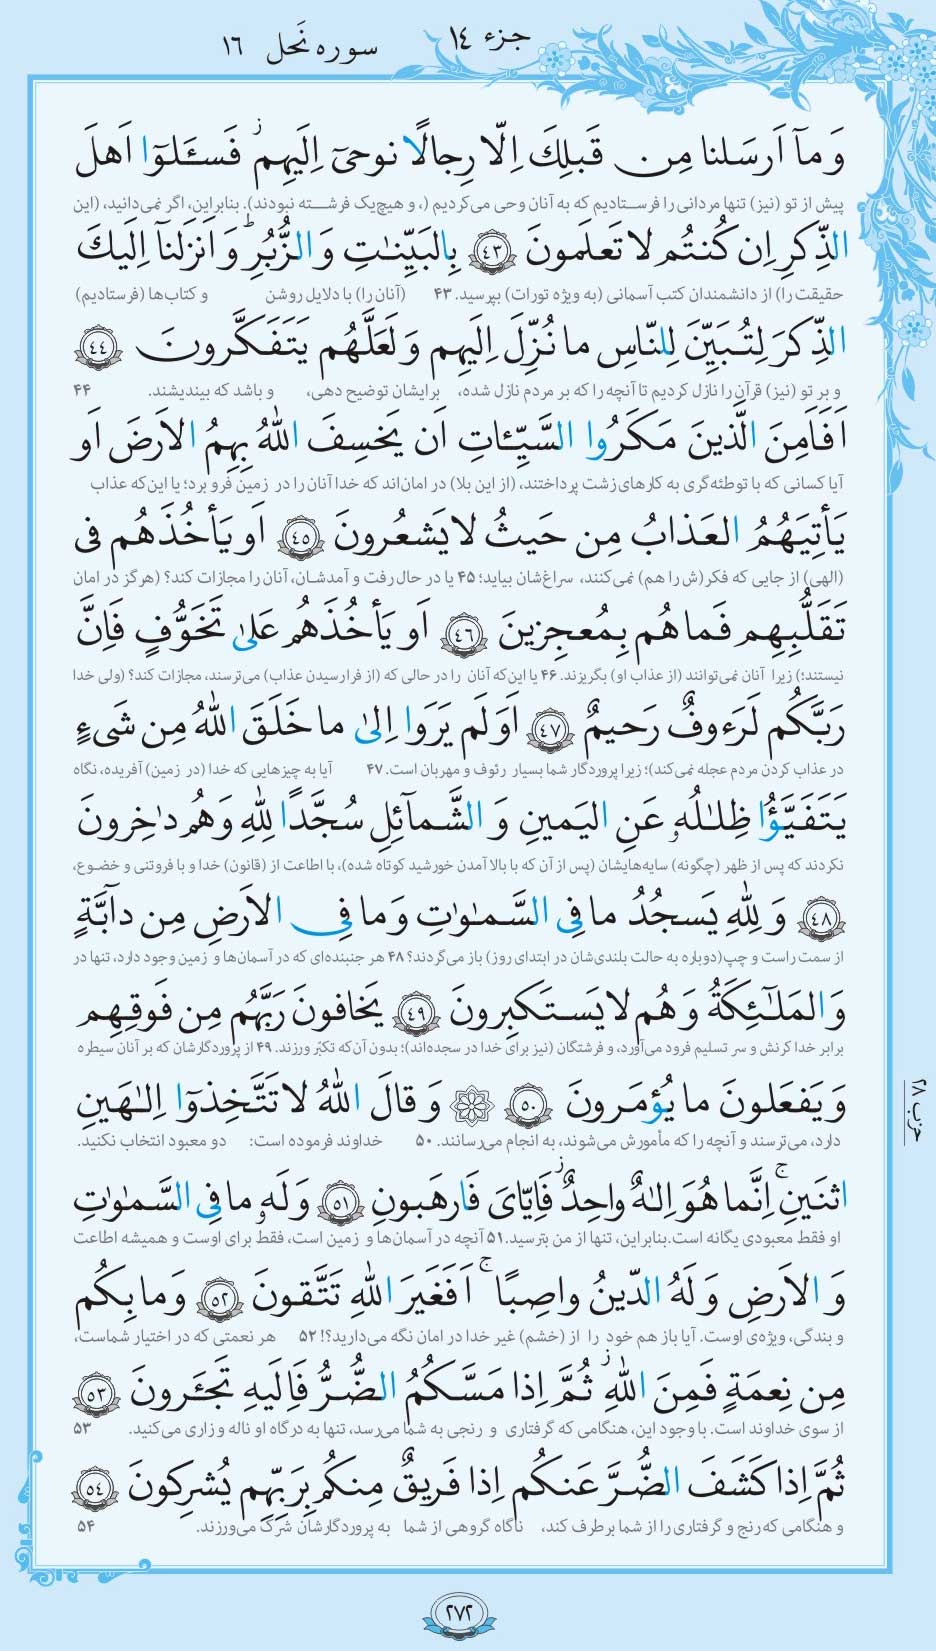 جزء ١٤
سوره نَحل ١٦
وَ مآ اَرسَلنا مِن قَبلِكَ اِلّا رِجالًا نوحىٓ اِلَيهِم ۚ فَسـَٔلوٓا اَهلَ
پیش از تو (نیز) تنها مردانی را فرستادیم که به آنان وحی می‌کردیم (، و هیچ‌یک فرشته نبودند). بنابراین، اگر نمی‌دانید، (این
الذِّكرِ اِن كُنتُم لا تَعلَمونَ ٤٣ بِالبَيِّنـٰتِ وَ الزُّبُرِ ۗ وَ اَنزَلنآ اِلَيكَ
حقیقت را) از دانشمندان کتب آسمانی (به ویژه تورات) بپرسید. ۴۳ (آنان را) با دلایل روشن و کتاب‌ها (فرستادیم)
الذِّكرَ لِتُبَيِّنَ لِلنّاسِ ما نُزِّلَ اِلَيهِم وَ لَعَلَّهُم يَتَفَكَّرونَ ٤٤
و بر تو (نیز) قرآن را نازل کردیم تا آنچه را که بر مردم نازل شده، برایشان توضیح دهی، و باشد که بیندیشند. ۴۴
اَفَاَمِنَ الَّذينَ مَكَرُوا السَّيِّـٔاتِ اَن يَخسِفَ اللّٰهُ بِهِمُ الاَرضَ اَو
آیا کسانی که با توطئه‌گری به کارهای زشت پرداختند، (از این بلا) در امان‌اند که خدا آنان را در زمین فرو برد؛ یا این‌که عذاب
يَأتِيَهُمُ العَذابُ مِن حَيثُ لا يَشعُرونَ ٤٥ اَو يَأخُذَهُم فى
(الهی) از جایی که فکر(ش را هم) نمی‌کنند، سراغ‌شان بیاید؛ ۴۵ یا در حال رفت و آمدشان، آنان را مجازات کند؟ (هرگز در امان
تَقَلُّبِهِم فَما هُم بِمُعجِزينَ ٤٦ اَو يَأخُذَهُم عَلىٰ تَخَوُّفٍ فَاِنَّ
نیستند؛) زیرا آنان نمی‌توانند (از عذاب او) بگریزند. ۴۶ یا این‌که آنان را در حالی که (از فرارسیدن عذاب) می‌ترسند، مجازات کند؟ (ولی خدا
رَبَّكُم لَرَءوفٌ رَحيمٌ ٤٧ اَوَ لَم يَرَوا اِلىٰ ما خَلَقَ اللّٰهُ مِن شَىءٍ
در عذاب کردن مردم عجله نمی‌کند)؛ زیرا پروردگار شما بسیار رئوف و مهربان است. ۴۷ آیا به چیزهایی که خدا (در زمین) آفریده، نگاه
يَتَفَيَّؤُا ظِلـٰلُهۥ عَنِ اليَمينِ وَ الشَّمآئِلِ سُجَّدًا لِلّٰهِ وَ هُم دٰخِرونَ
نکردند که پس از ظهر (چگونه) سایه‌هایشان (پس از آن که با بالا آمدن خورشید کوتاه شده)، با اطاعت از (قانون) خدا و با فروتنی و خضوع،
٤٨ وَ لِلّٰهِ يَسجُدُ ما فِى السَّمـٰوٰتِ وَ ما فِى الاَرضِ مِن دآبَّةٍ
از سمت راست و چپ(دوباره به حالت بلندی‌شان در ابتدای روز) باز می‌گردند؟ ۴۸ هر جنبنده‌ای که در آسمان‌ها و زمین وجود دارد، تنها در
وَ المَلـٰٓئِكَةُ وَ هُم لا يَستَكبِرونَ ٤٩ يَخافونَ رَبَّهُم مِن فَوقِهِم
برابر خدا کرنش و سر تسلیم فرود می‌آورد، و فرشتگان (نیز برای خدا در سجده‌اند)؛ بدون آن‌که تکبّر ورزند. ۴۹ از پروردگارشان که بر آنان سیطره
وَ يَفعَلونَ ما يُؤمَرونَ ٥٠ ۞ وَ قالَ اللّٰهُ لا تَتَّخِذوٓا اِلـٰهَينِ
دارد، می‌ترسند و آنچه را که مأمورش می‌شوند، به انجام می‌رسانند. ۵۰ خداوند فرموده است: دو معبود انتخاب نکنید.
اثنَينِ ۖ اِنَّما هُوَ اِلـٰهٌ واحِدٌ ۚ فَاِيّاىَ فَارهَبونِ ٥١ وَ لَهۥ ما فِى السَّمـٰوٰتِ
او فقط معبودی یگانه است.بنابراین، تنها از من بترسید.۵۱ آنچه در آسمان‌ها و زمین است، فقط برای اوست و همیشه اطاعت
وَ الاَرضِ وَ لَهُ الدّينُ واصِبًا ۚ اَفَغَيرَ اللّٰهِ تَتَّقونَ ٥٢ وَ ما بِكُم
و بندگی، ویژه‌ی اوست. آیا باز هم خود را از (خشم) غیر خدا در امان نگه می‌دارید؟! ۵۲ هر نعمتی که در اختیار شماست،
مِن نِعمَةٍ فَمِنَ اللّٰهِ ۖ ثُمَّ اِذا مَسَّكُمُ الضُّرُّ فَاِلَيهِ تَجـَٔرونَ ٥٣
از سوی خداوند است. با وجود این، هنگامی که گرفتاری و رنجی به شما می‌رسد، تنها به درگاه او ناله و زاری می‌کنید. ۵۳
ثُمَّ اِذا كَشَفَ الضُّرَّ عَنكُم اِذا فَريقٌ مِنكُم بِرَبِّهِم يُشرِكونَ ٥٤
و هنگامی که رنج و گرفتاری را از شما برطرف کند، ناگاه گروهی از شما به پروردگارشان شرک می‌ورزند. ۵۴
حزب ٢٨
٢٧٢